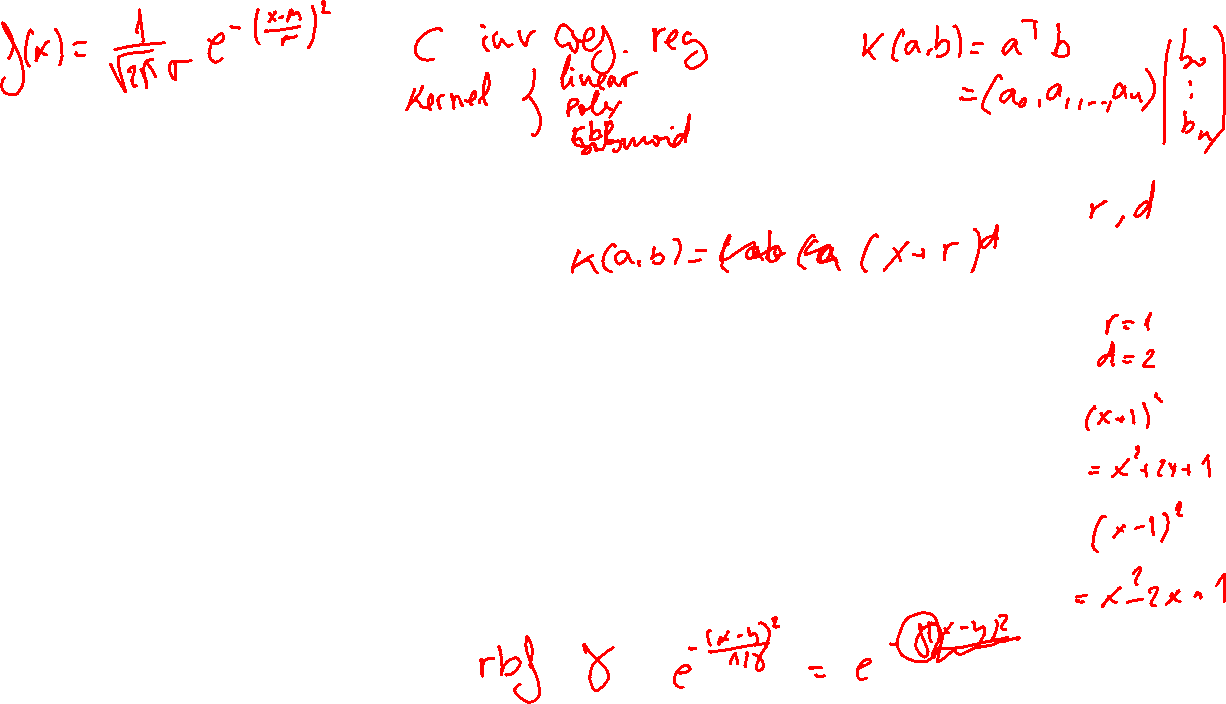 f(x) = 1/(√2π σ) e^-((x-μ)/σ)^2
C inv reg. reg
Kernel { linear
poly
rbf
sigmoid
K(a,b) = a^T b
= (a₀, a₁, ..., aₙ) (b₀ ⋮ bₙ)
r, d
K(a,b) = (x + r)^d
r = 1
d = 2
(x+1)²
= x² + 2x + 1
(x-1)²
= x² - 2x + 1
rbf γ e^-((x-y)²/(1/γ)) = e^-γ(x-y)²